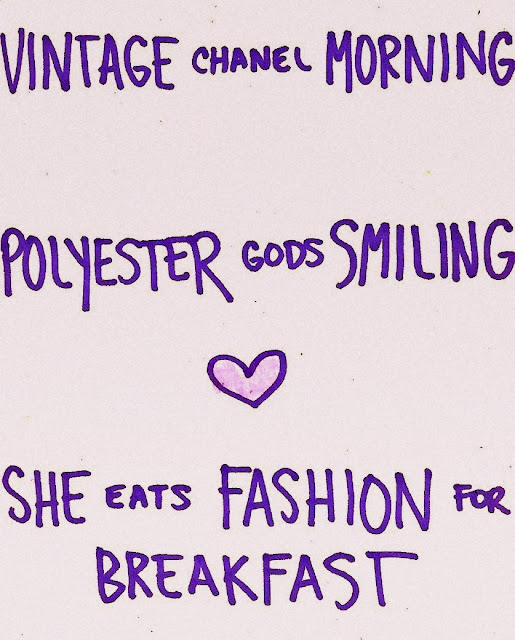 VINTAGE CHANEL MORNING
POLYESTER GODS SMILING
SHE EATS FASHION FOR
BREAKFAST